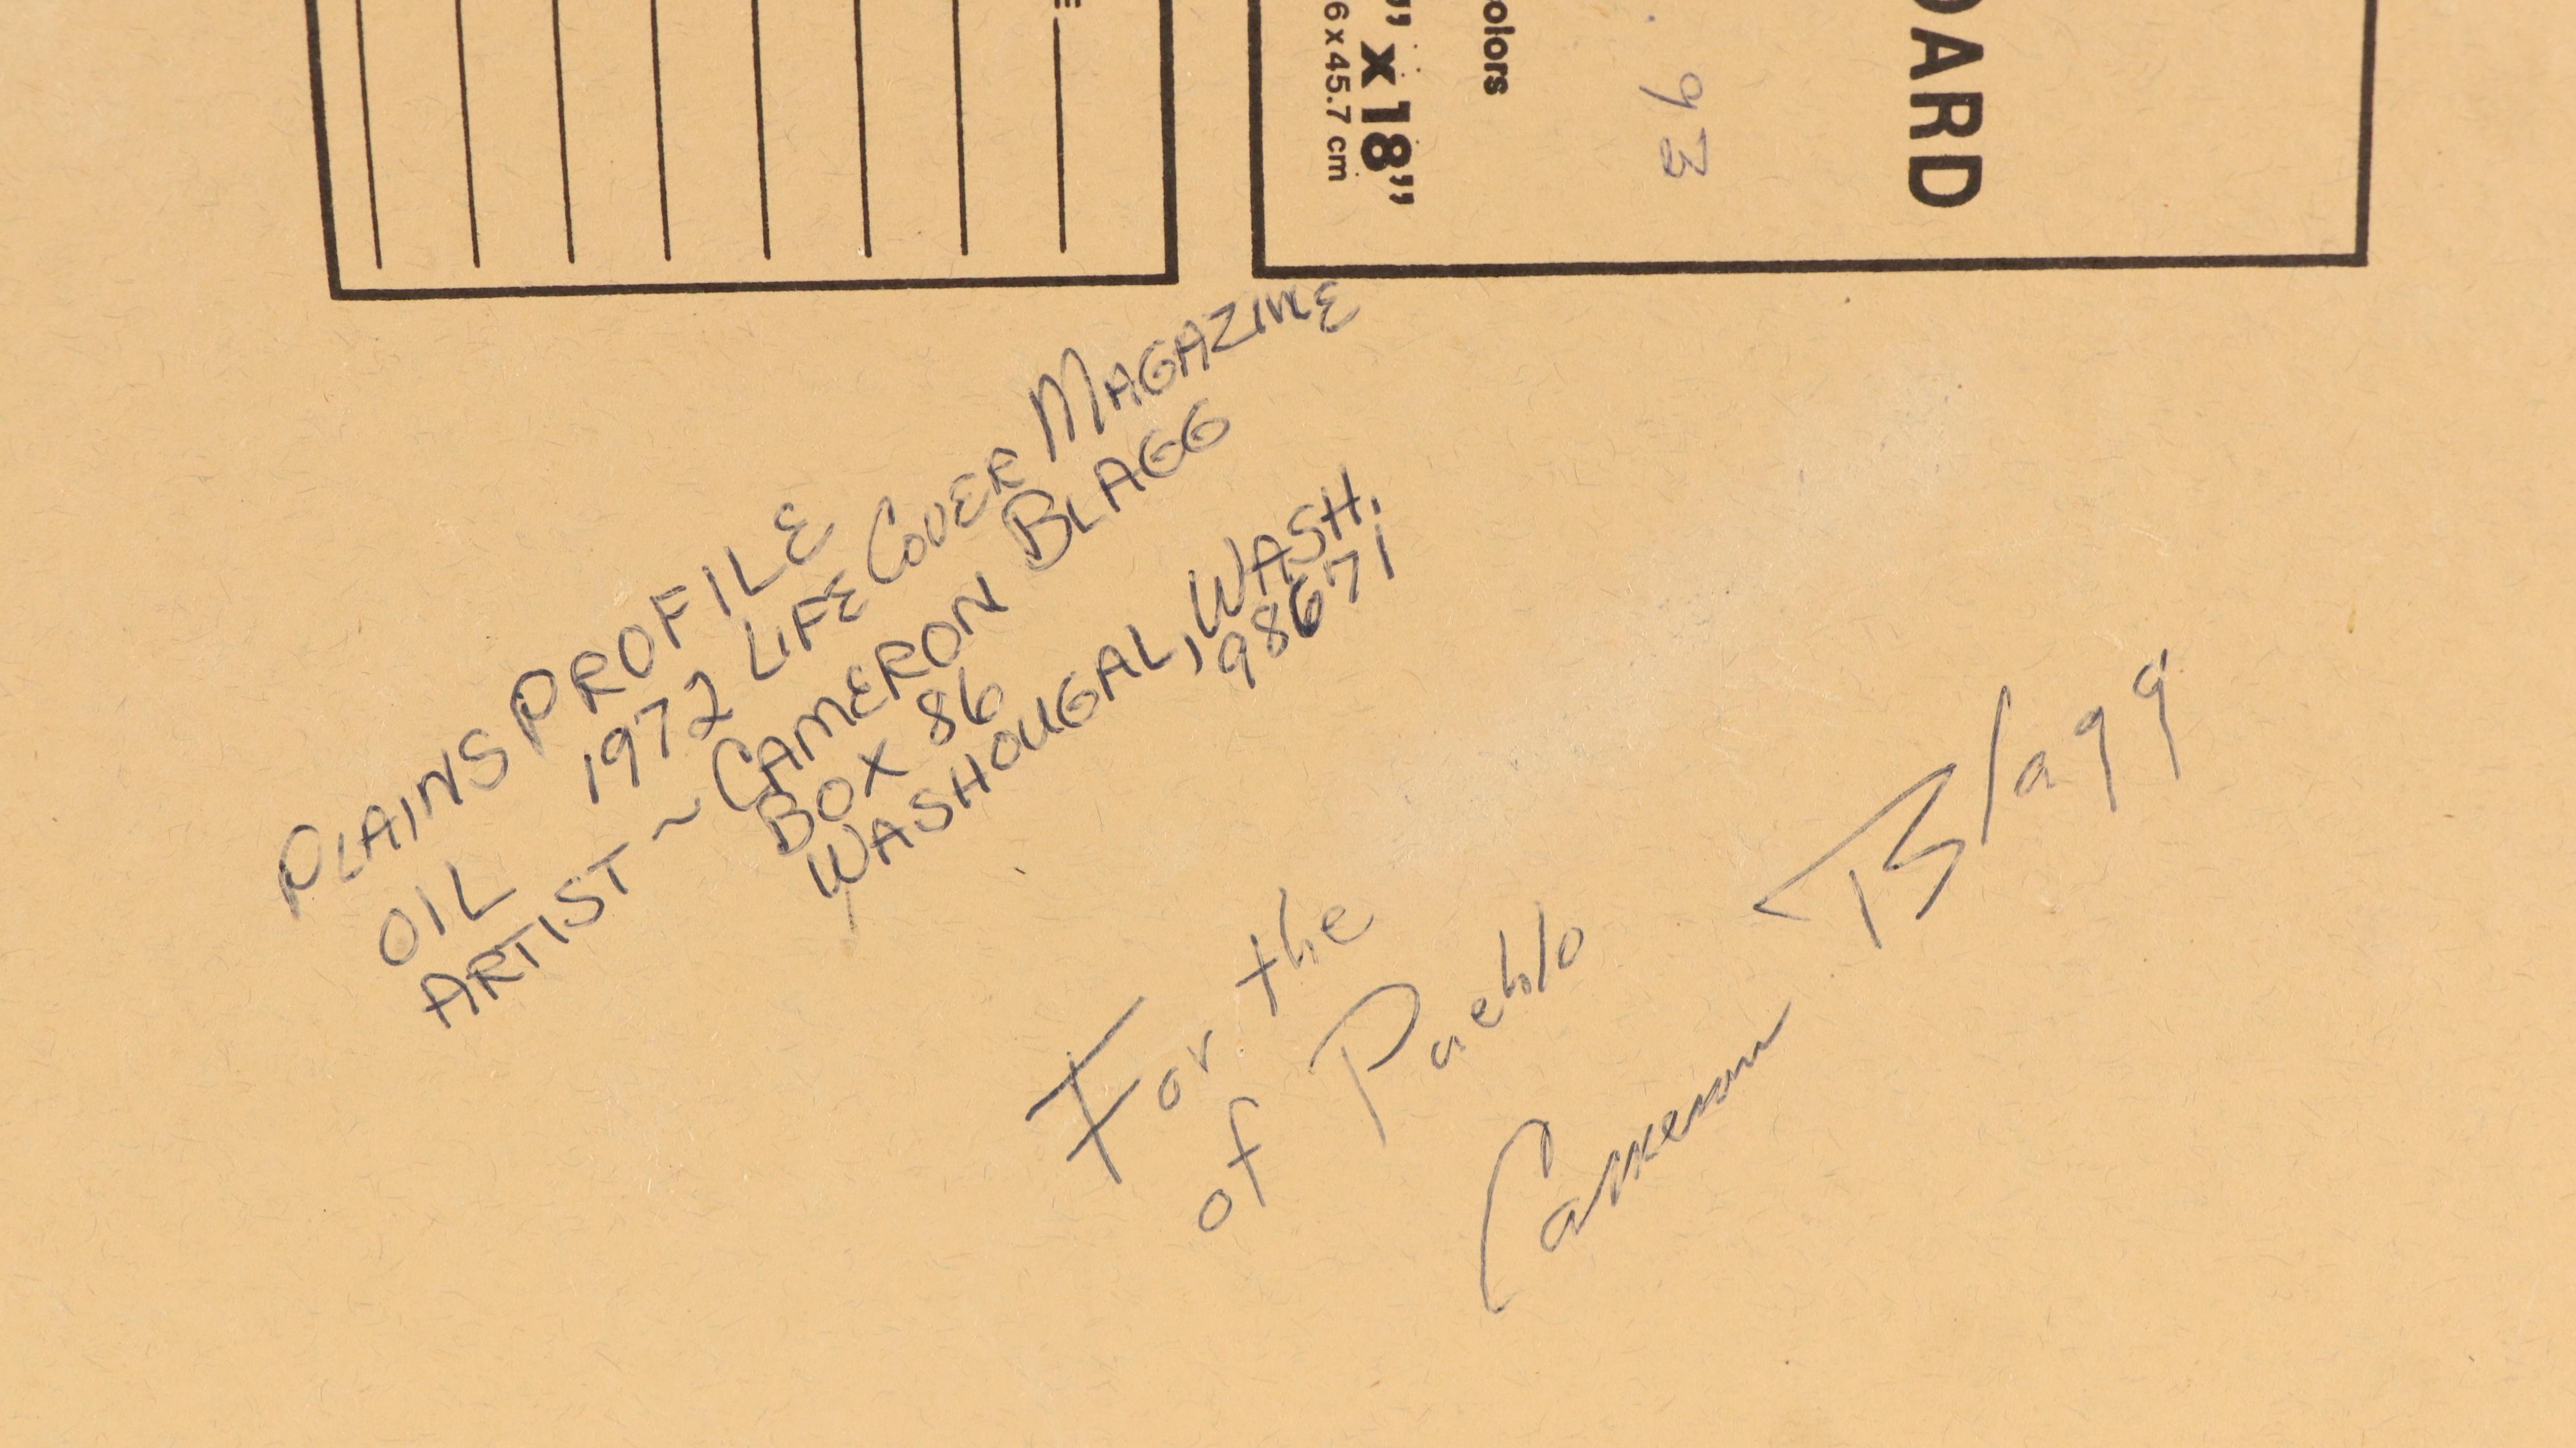 OARD
93
olors
" x 18"
6 x 45.7 cm
E
PLAINS PROFILE
OIL 1972 LIFE COVER MAGAZINE
ARTIST ~ CAMERON BLAGG
BOX 86
WASHOUGAL, WASH.
98671
For the
of Pueblo
Cameron Blagg